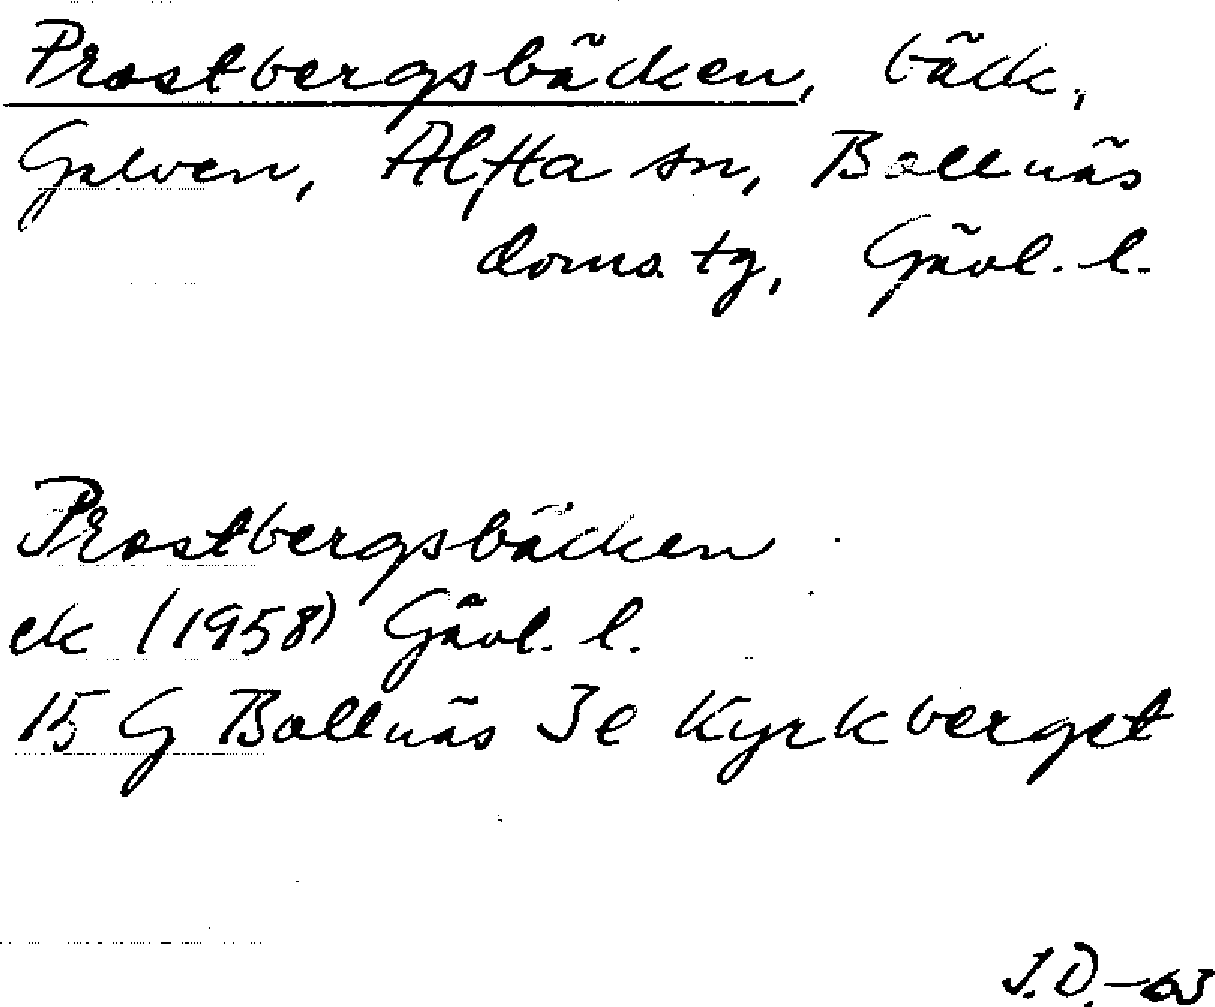 Prostbergsbäcken, bäck,
Galven, Alfta sn, Bollnäs
doms. tg, Gävl. l.
Prostbergsbäcken
ek (1958) Gävl. l.
15 G Bollnäs 3e Kyrkberget
J.D.-63